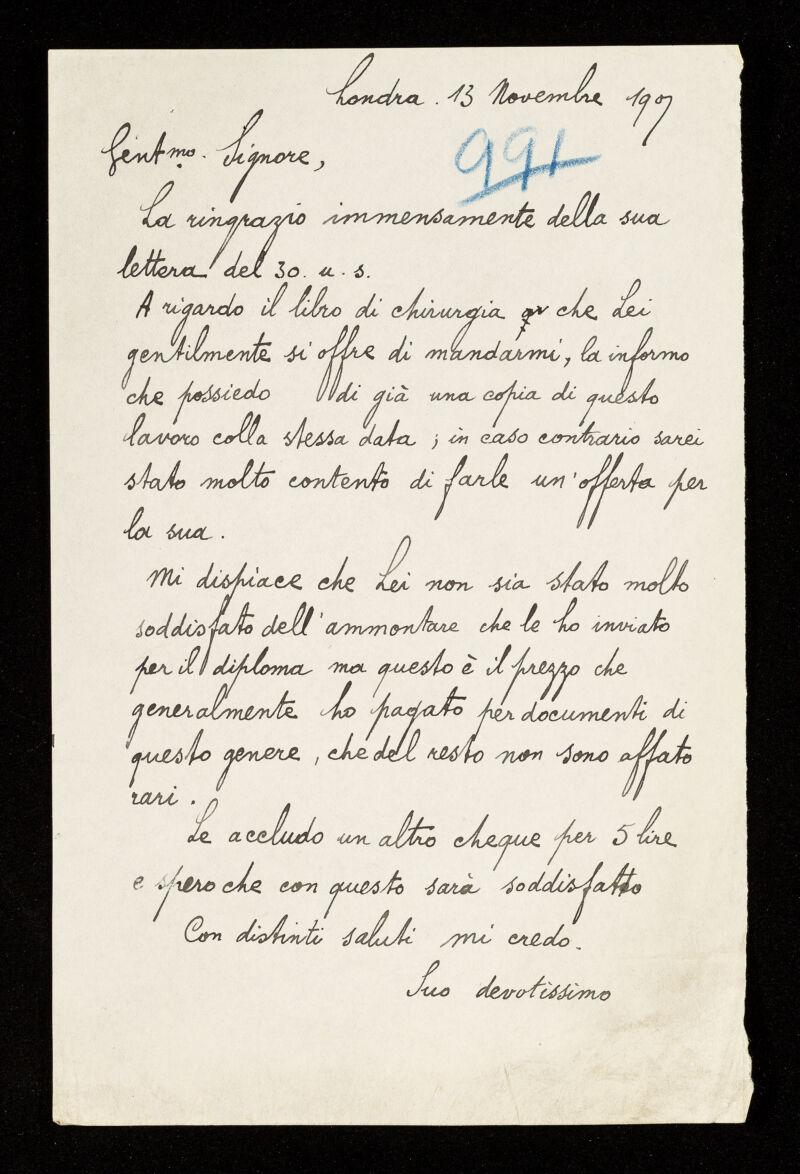 Londra. 13 Novembre 1907
991
Gentmo. Signore,
La ringrazio immensamente della sua
lettera del 30. u. s.
A rigardo il libro di chirurgia che Lei
gentilmente si offre di mandarmi, la informo
che possiedo di già una copia di questo
lavoro colla stessa data ; in caso contrario sarei
stato molto contento di farle un'offerta per
la sua.
Mi dispiace che Lei non sia stato molto
soddisfato dell'ammontare che le ho inviato
per il diploma ma questo è il prezzo che
generalmente ho pagato per documenti di
questo genere, che del resto non sono affato
rari.
Le accludo un altro cheque per 5 lire
e spero che con questo sarà soddisfatto
Con distinti saluti mi credo.
Suo devotissimo